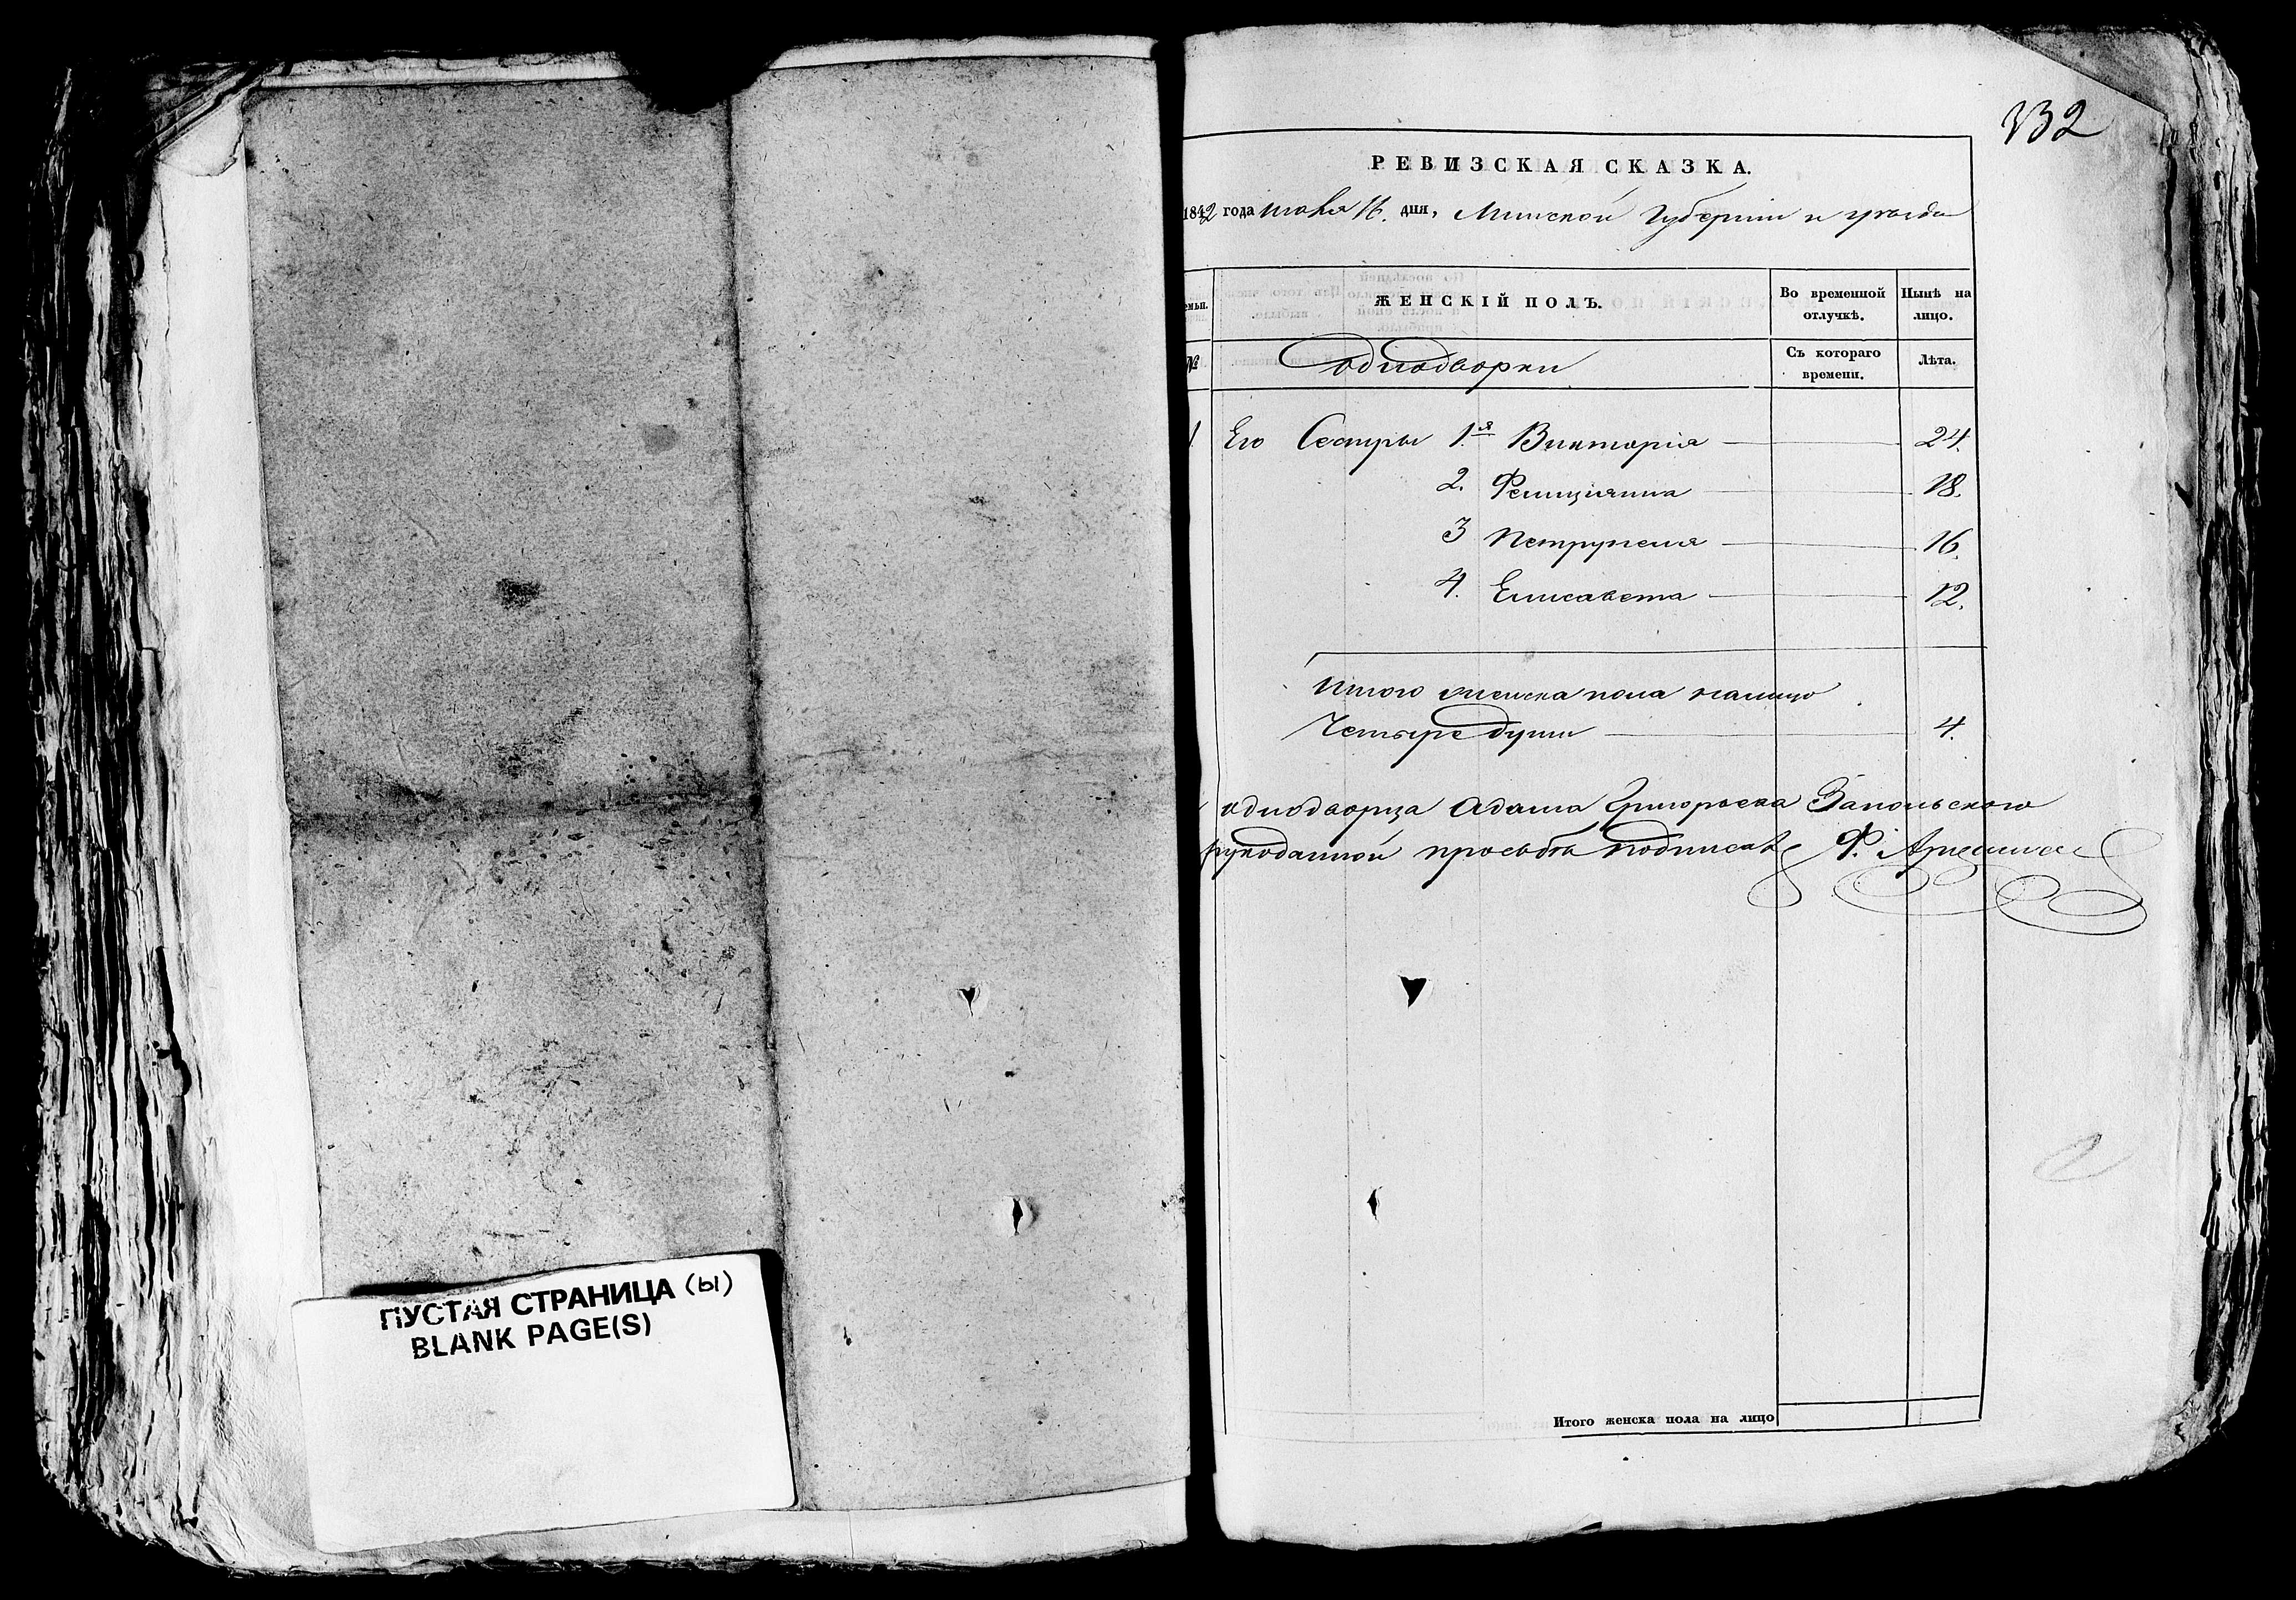 332
РЕВИЗСКАЯ СКАЗКА.
1842 года июня 16. дня, Минской Губерніи и уезда
емьи. ЖЕНСКІЙ ПОЛЪ. Во временной отлучкѣ. Нынѣ на лицо.
№ однодворки Съ котораго времени. Лѣта.
1 Его Сестры 1.я Викторія 24.
2. Фелиціянна 18.
3 Петрунеля 16.
4. Елисавета 12.
Итого женска пола налицо
Четыре души 4.
однодворца Адама Григорьева Запольского
рукоданной просьбѣ подписалъ Ф.
Итого женска пола на лицо
ПУСТАЯ СТРАНИЦА (ы)
BLANK PAGE(S)